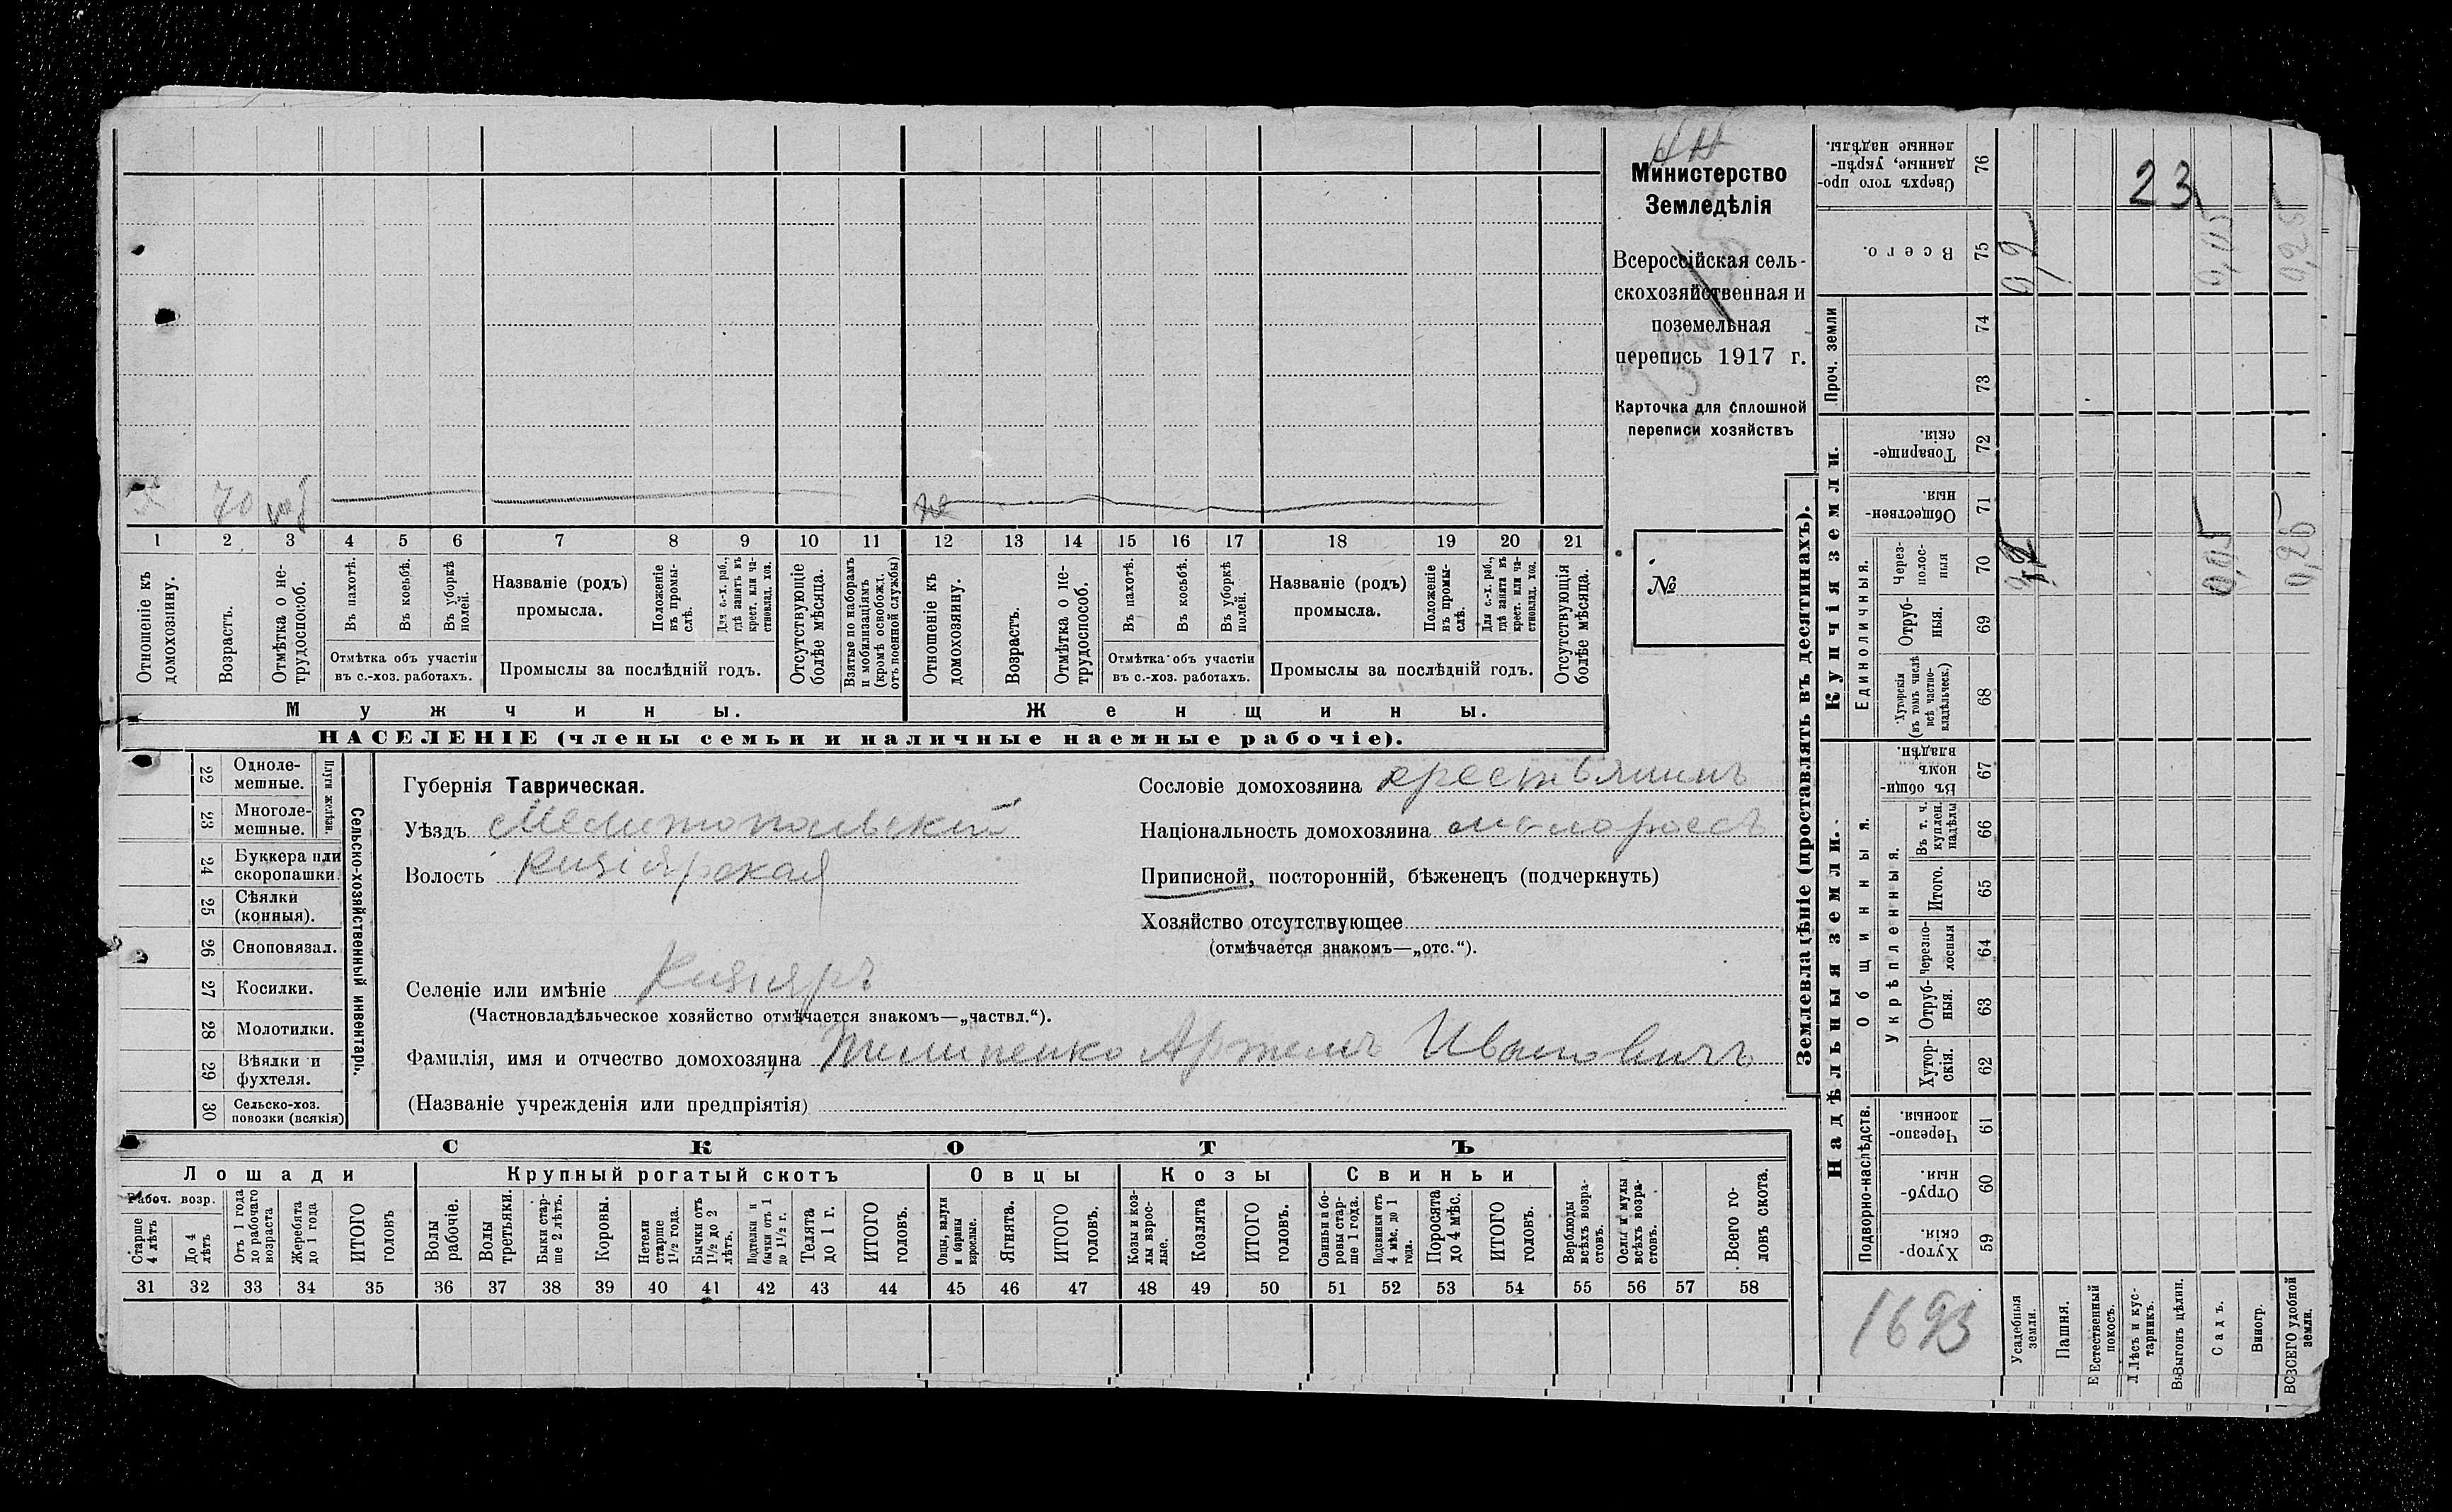 Министерство
Земледѣлія
Всероссійская сель-
скохозяйственная и
поземельная
перепись 1917 г.
Карточка для сплошной
переписи хозяйствъ
№
х 70
1 2 3 4 5 6 7 8 9 10 11 12 13 14 15 16 17 18 19 20 21
Отношеніе къ домохозяину.
Возрастъ.
Отмѣтка о не-трудоспособ.
Въ пахотѣ.
Въ косьбѣ.
Въ уборкѣ полей.
Отмѣтка объ участіи
въ с.-хоз. работахъ.
Названіе (родъ)
промысла.
Положеніе въ промы-слѣ.
Для с.-х. раб., гдѣ занятъ въ крест. или ча-стновлад. хоз.
Промыслы за послѣдній годъ.
Отсутствующіе болѣе мѣсяца.
Взятые по наборамъ и мобилизаціямъ (кромѣ освобожд. отъ военной службы)
Отношеніе къ домохозяину.
Возрастъ.
Отмѣтка о не-трудоспособ.
Въ пахотѣ.
Въ косьбѣ.
Въ уборкѣ полей.
Отмѣтка объ участіи
въ с.-хоз. работахъ.
Названіе (родъ)
промысла.
Положеніе въ промы-слѣ.
Для с.-х. раб., гдѣ занята въ крест. или ча-стновлад. хоз.
Промыслы за послѣдній годъ.
Отсутствующія болѣе мѣсяца.
Мужчины. Женщины.
НАСЕЛЕНІЕ (члены семьи и наличные наемные рабочіе).
Сельско-хозяйственный инвентарь.
Плуги желѣзн.
22 Одноле-мешные.
23 Многоле-мешные.
24 Буккера или скоропашки.
25 Сѣялки (конныя).
26 Сноповязал.
27 Косилки.
28 Молотилки.
29 Вѣялки и фухтеля.
30 Сельско-хоз. повозки (всякія)
Губернія Таврическая.
Уѣздъ Мелитопольскій
Волость Кизіярская
Селеніе или имѣніе Кизіяръ
(Частновладѣльческое хозяйство отмѣчается знакомъ—„частвл.“).
Фамилія, имя и отчество домохозяина Телипенко Артемъ Ивановичъ
(Названіе учрежденія или предпріятія)
Сословіе домохозяина крестьянинъ
Національность домохозяина малороссъ
Приписной, посторонній, бѣженецъ (подчеркнуть)
Хозяйство отсутствующее
(отмѣчается знакомъ—„отс.“).
СКОТЪ
Лошади Крупный рогатый скотъ Овцы Козы Свиньи
Рабоч. возр.
Старше 4 лѣтъ
До 4 лѣтъ
Отъ 1 года до рабочаго возраста
Жеребята до 1 года
ИТОГО головъ
Волы рабочіе.
Волы третьяки.
Быки стар-ше 2 лѣтъ.
Коровы.
Нетели старше 1½ года.
Бычки отъ 1½ до 2 лѣтъ.
Подтелки и бычки отъ 1 до 1½ г.
Телята до 1 г.
ИТОГО головъ.
Овцы, валухи и бараны взрослые.
Ягнята.
ИТОГО головъ.
Козы и коз-лы взрос-лые.
Козлята
ИТОГО головъ.
Свиньи и бо-ровы стар-ше 1 года.
Подсвинки отъ 4 мѣс. до 1 года.
Поросята до 4 мѣс.
ИТОГО головъ.
Верблюды всѣхъ возра-стовъ.
Ослы и мулы всѣхъ возра-стовъ.
Всего го-ловъ скота.
31 32 33 34 35 36 37 38 39 40 41 42 43 44 45 46 47 48 49 50 51 52 53 54 55 56 57 58
Землевладѣніе (проставлять въ десятинахъ).
Надѣльныя земли. Купчія земли. Проч. земли
Подворно-наслѣдств.
Хутор-скія. 59
Отруб-ныя. 60
Черезпо-лосныя. 61
Общинныя.
Укрѣпленныя.
Хутор-скія. 62
Отруб-ныя. 63
Черезпо-лосныя 64
Итого. 65
Въ т. ч. куплен. надѣлы 66
Въ общи-номъ владѣн. 67
Единоличныя.
Хуторскія (въ томъ числѣ всѣ частно-владѣльческ.) 68
Отруб-ныя. 69
Через-полос-ныя 70
Обществен-ныя. 71
Товарище-скія. 72
73
74
Всего. 75
Сверхъ того про-данные, укрѣп-ленные надѣлы. 76
23
0,2 0,05 0,25
0,2 0,05 0,25
1693
Усадебныя земли.
Пашня.
Естественный покосъ.
Лѣсъ и кус-тарникъ.
Выгонъ цѣлин.
Садъ.
Виногр.
ВСЕГО удобной земли.